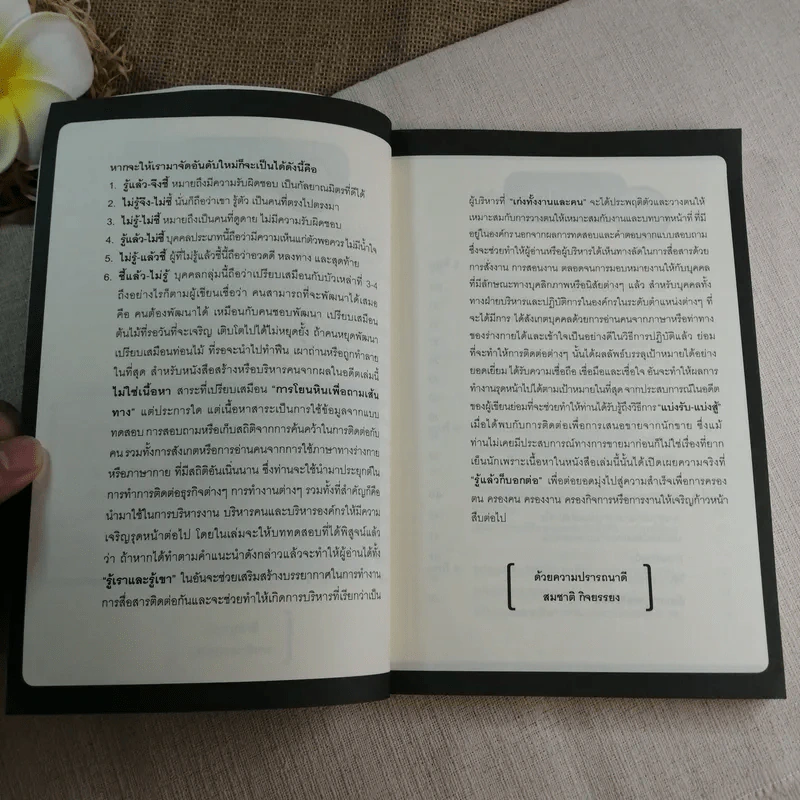 หากจะให้เรามาจัดอันดับใหม่ก็จะเป็นได้ดังนี้คือ
1. รู้แล้ว-จึงชี้ หมายถึงมีความรับผิดชอบ เป็นกัลยาณมิตรที่ดีได้
2. ไม่รู้จึง-ไม่ชี้ นั่นก็ถือว่าเขา รู้ตัว เป็นคนที่ตรงไปตรงมา
3. ไม่รู้-ไม่ชี้ หมายถึงเป็นคนที่ดูดาย ไม่มีความรับผิดชอบ
4. รู้แล้ว-ไม่ชี้ บุคคลประเภทนี้ถือว่ามีความเห็นแก่ตัวพอควร ไม่มีน้ำใจ
5. ไม่รู้-แล้วชี้ ผู้ที่ไม่รู้แล้วชี้นี้ถือว่าอวดดี หลงทาง และสุดท้าย
6. ชี้แล้ว-ไม่รู้ บุคคลกลุ่มนี้ถือว่าเปรียบเสมือนกับบัวเหล่าที่ 3-4
ถึงอย่างไรก็ตามผู้เขียนเชื่อว่า คนสามารถที่จะพัฒนาได้เสมอ
คือ คนต้องพัฒนาได้ เหมือนกับคนชอบพัฒนา เปรียบเสมือน
ต้นไม้ที่รอวันที่จะเจริญ เติบโตไปได้ไม่หยุดยั้ง ถ้าคนหยุดพัฒนา
เปรียบเสมือนท่อนไม้ ที่รอจะนำไปทำฟืน เผาถ่านหรือถูกทำลาย
ในที่สุด สำหรับหนังสือสร้างหรือบริหารคนจากผลในอดีตเล่มนี้
ไม่ใช่เนื้อหา สาระที่เปรียบเสมือน "การโยนหินเพื่อถามเส้น
ทาง" แต่ประการใด แต่เนื้อหาสาระเป็นการใช้ข้อมูลจากแบบ
ทดสอบ การสอบถามหรือเก็บสถิติจากการค้นคว้าในการติดต่อกับ
คน รวมทั้งการสังเกตหรือการอ่านคนจากการใช้ภาษาทางร่างกาย
หรือภาษากาย ที่มีสถิติอันเนิ่นนาน ซึ่งท่านจะใช้นำมาประยุกต์ใน
การทำการติดต่อธุรกิจต่างๆ การทำงานต่างๆ รวมทั้งที่สำคัญก็คือ
นำมาใช้ในการบริหารงาน บริหารคนและบริหารองค์กรให้มีความ
เจริญรุดหน้าต่อไป โดยในเล่มจะให้บททดสอบที่ได้พิสูจน์แล้ว
ว่า ถ้าหากได้ทำตามคำแนะนำดังกล่าวแล้วจะทำให้ผู้อ่านได้ทั้ง
"รู้เราและรู้เขา" ในอันจะช่วยเสริมสร้างบรรยากาศในการทำงาน
การสื่อสารติดต่อกันและจะช่วยทำให้เกิดการบริหารที่เรียกว่าเป็น
ผู้บริหารที่ "เก่งทั้งงานและคน" จะได้ประพฤติตัวและวางตนให้
เหมาะสมกับการวางตนให้เหมาะสมกับงานและบทบาทหน้าที่ ที่มี
อยู่ในองค์กร นอกจากผลการทดสอบและคำตอบจากแบบสอบถาม
ซึ่งจะช่วยทำให้ผู้อ่านหรือผู้บริหารได้เห็นทางลัดในการสื่อสารด้วย
การสั่งงาน การสอนงาน ตลอดจนการมอบหมายงานให้กับบุคคล
ที่มีลักษณะทางบุคลิกภาพหรือนิสัยต่างๆ แล้ว สำหรับบุคคลทั้ง
ทางฝ่ายบริหารและปฏิบัติการในองค์กรในระดับตำแหน่งต่างๆ ที่
จะได้มีการ ได้สังเกตบุคคลด้วยการอ่านคนจากภาษาหรือท่าทาง
ของร่างกายได้และเข้าใจเป็นอย่างดีในวิธีการปฏิบัติแล้ว ย่อม
ที่จะทำให้การติดต่อต่างๆ นั้นได้ผลลัพธ์บรรลุเป้าหมายได้อย่าง
ยอดเยี่ยม ได้รับความเชื่อถือ เชื่อมือและเชื่อใจ อันจะทำให้ผลการ
ทำงานรุดหน้าไปได้ตามเป้าหมายในที่สุด จากประสบการณ์ในอดีต
ของผู้เขียนย่อมที่จะช่วยทำให้ท่านได้รับรู้ถึงวิธีการ "แบ่งรับ-แบ่งสู้"
เมื่อได้พบกับการติดต่อเพื่อการเสนอขายจากนักขาย ซึ่งแม้
ท่านไม่เคยมีประสบการณ์ทางการขายมาก่อนก็ไม่ใช่เรื่องที่ยาก
เย็นนักเพราะเนื้อหาในหนังสือเล่มนี้นั้นได้เปิดเผยความจริงที่
"รู้แล้วก็บอกต่อ" เพื่อต่อยอดมุ่งไปสู่ความสำเร็จเพื่อการครอง
ตน ครองคน ครองงาน ครองกิจการหรือการงานให้เจริญก้าวหน้า
สืบต่อไป
ด้วยความปรารถนาดี
สมชาติ กิจยรรยง